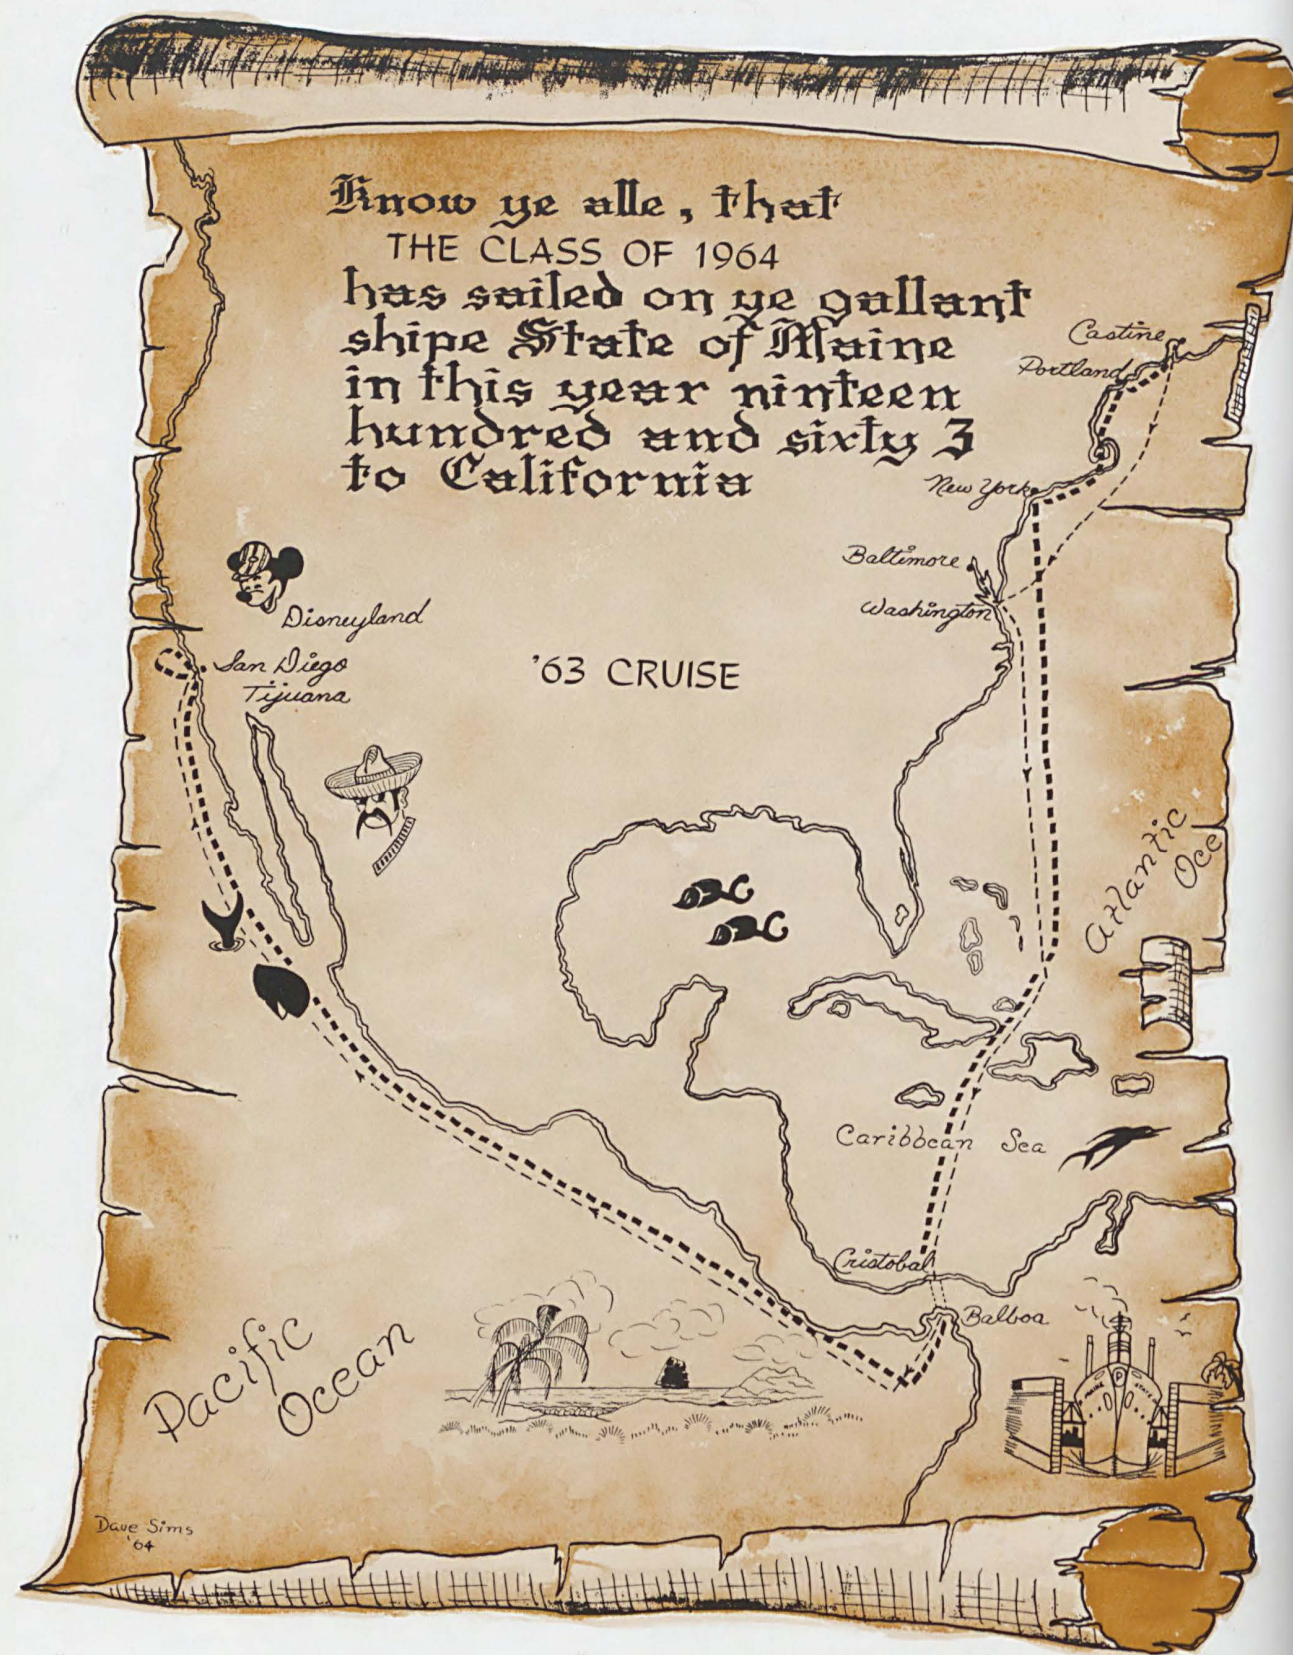 Know ye alle, that
THE CLASS OF 1964
has sailed on ye gallant
shipe State of Maine
in this year ninteen
hundred and sixty 3
to California
Castine
Portland
New York
Baltimore
Washington
Disneyland
San Diego
Tijuana
'63 CRUISE
Atlantic
Oce
Caribbean Sea
Cristobal
Balboa
Pacific
Ocean
MAINE STATE
P
Dave Sims
'64